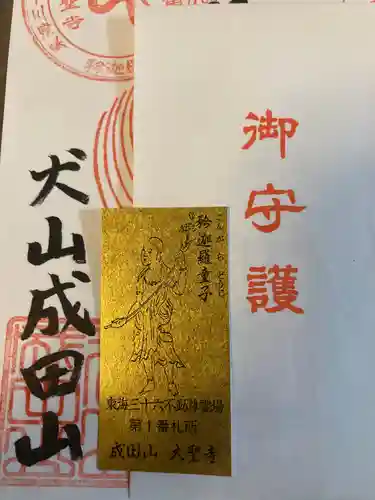 御守護
犬山成田山
矜迦羅童子
こんがらどうじ
東海三十六不動尊霊場
第1番札所
成田山 大聖寺